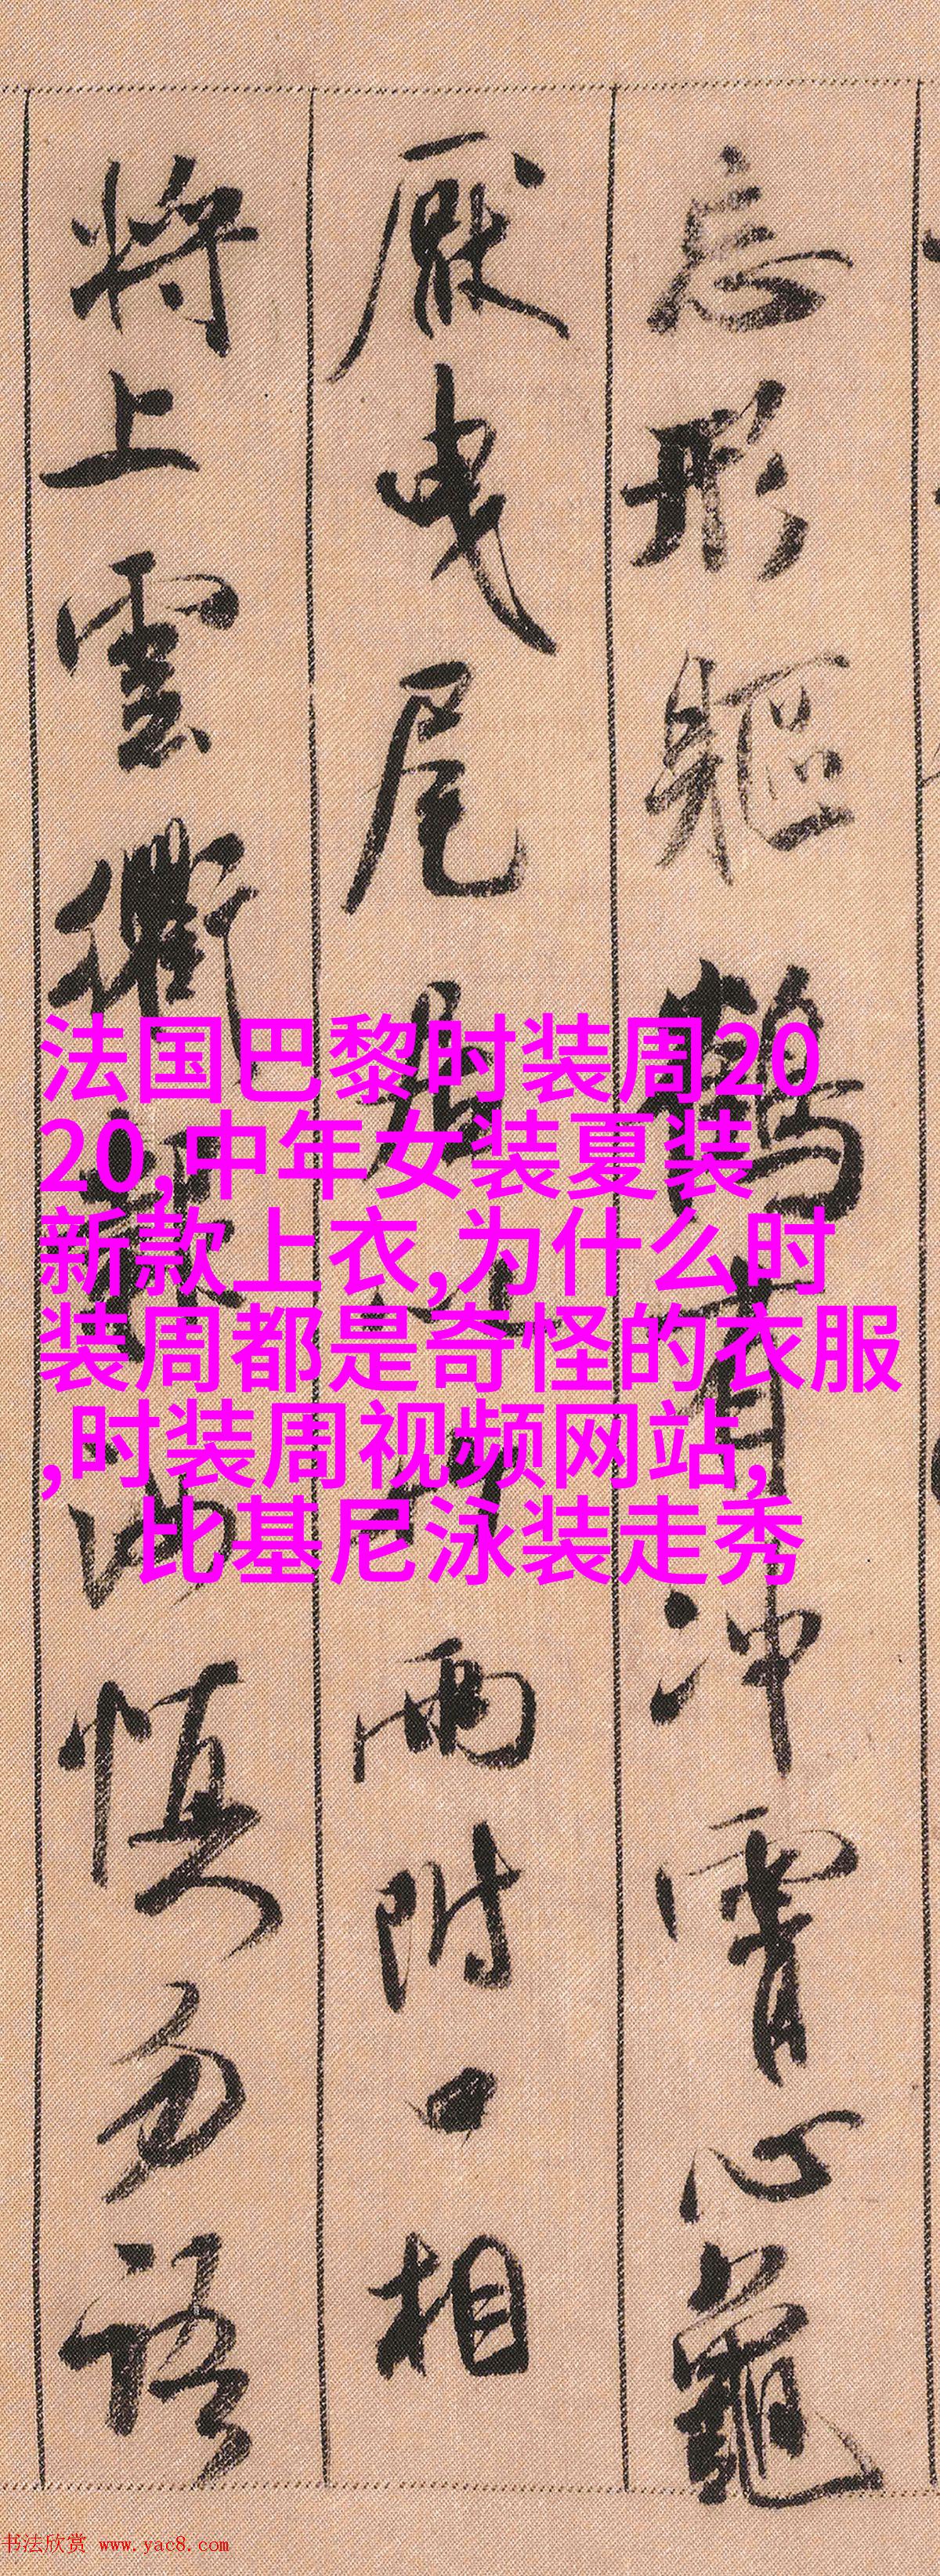 忘形軀鶴有冲霄心龜
厭曳尾居以竹兩附口相
將上雲衢報汝慎勿語
法国巴黎时装周20
20,中年女装夏装
新款上衣,为什么时
装周都是奇怪的衣服
,时装周视频网站,
比基尼泳装走秀
书法欣赏 www.yac8.com